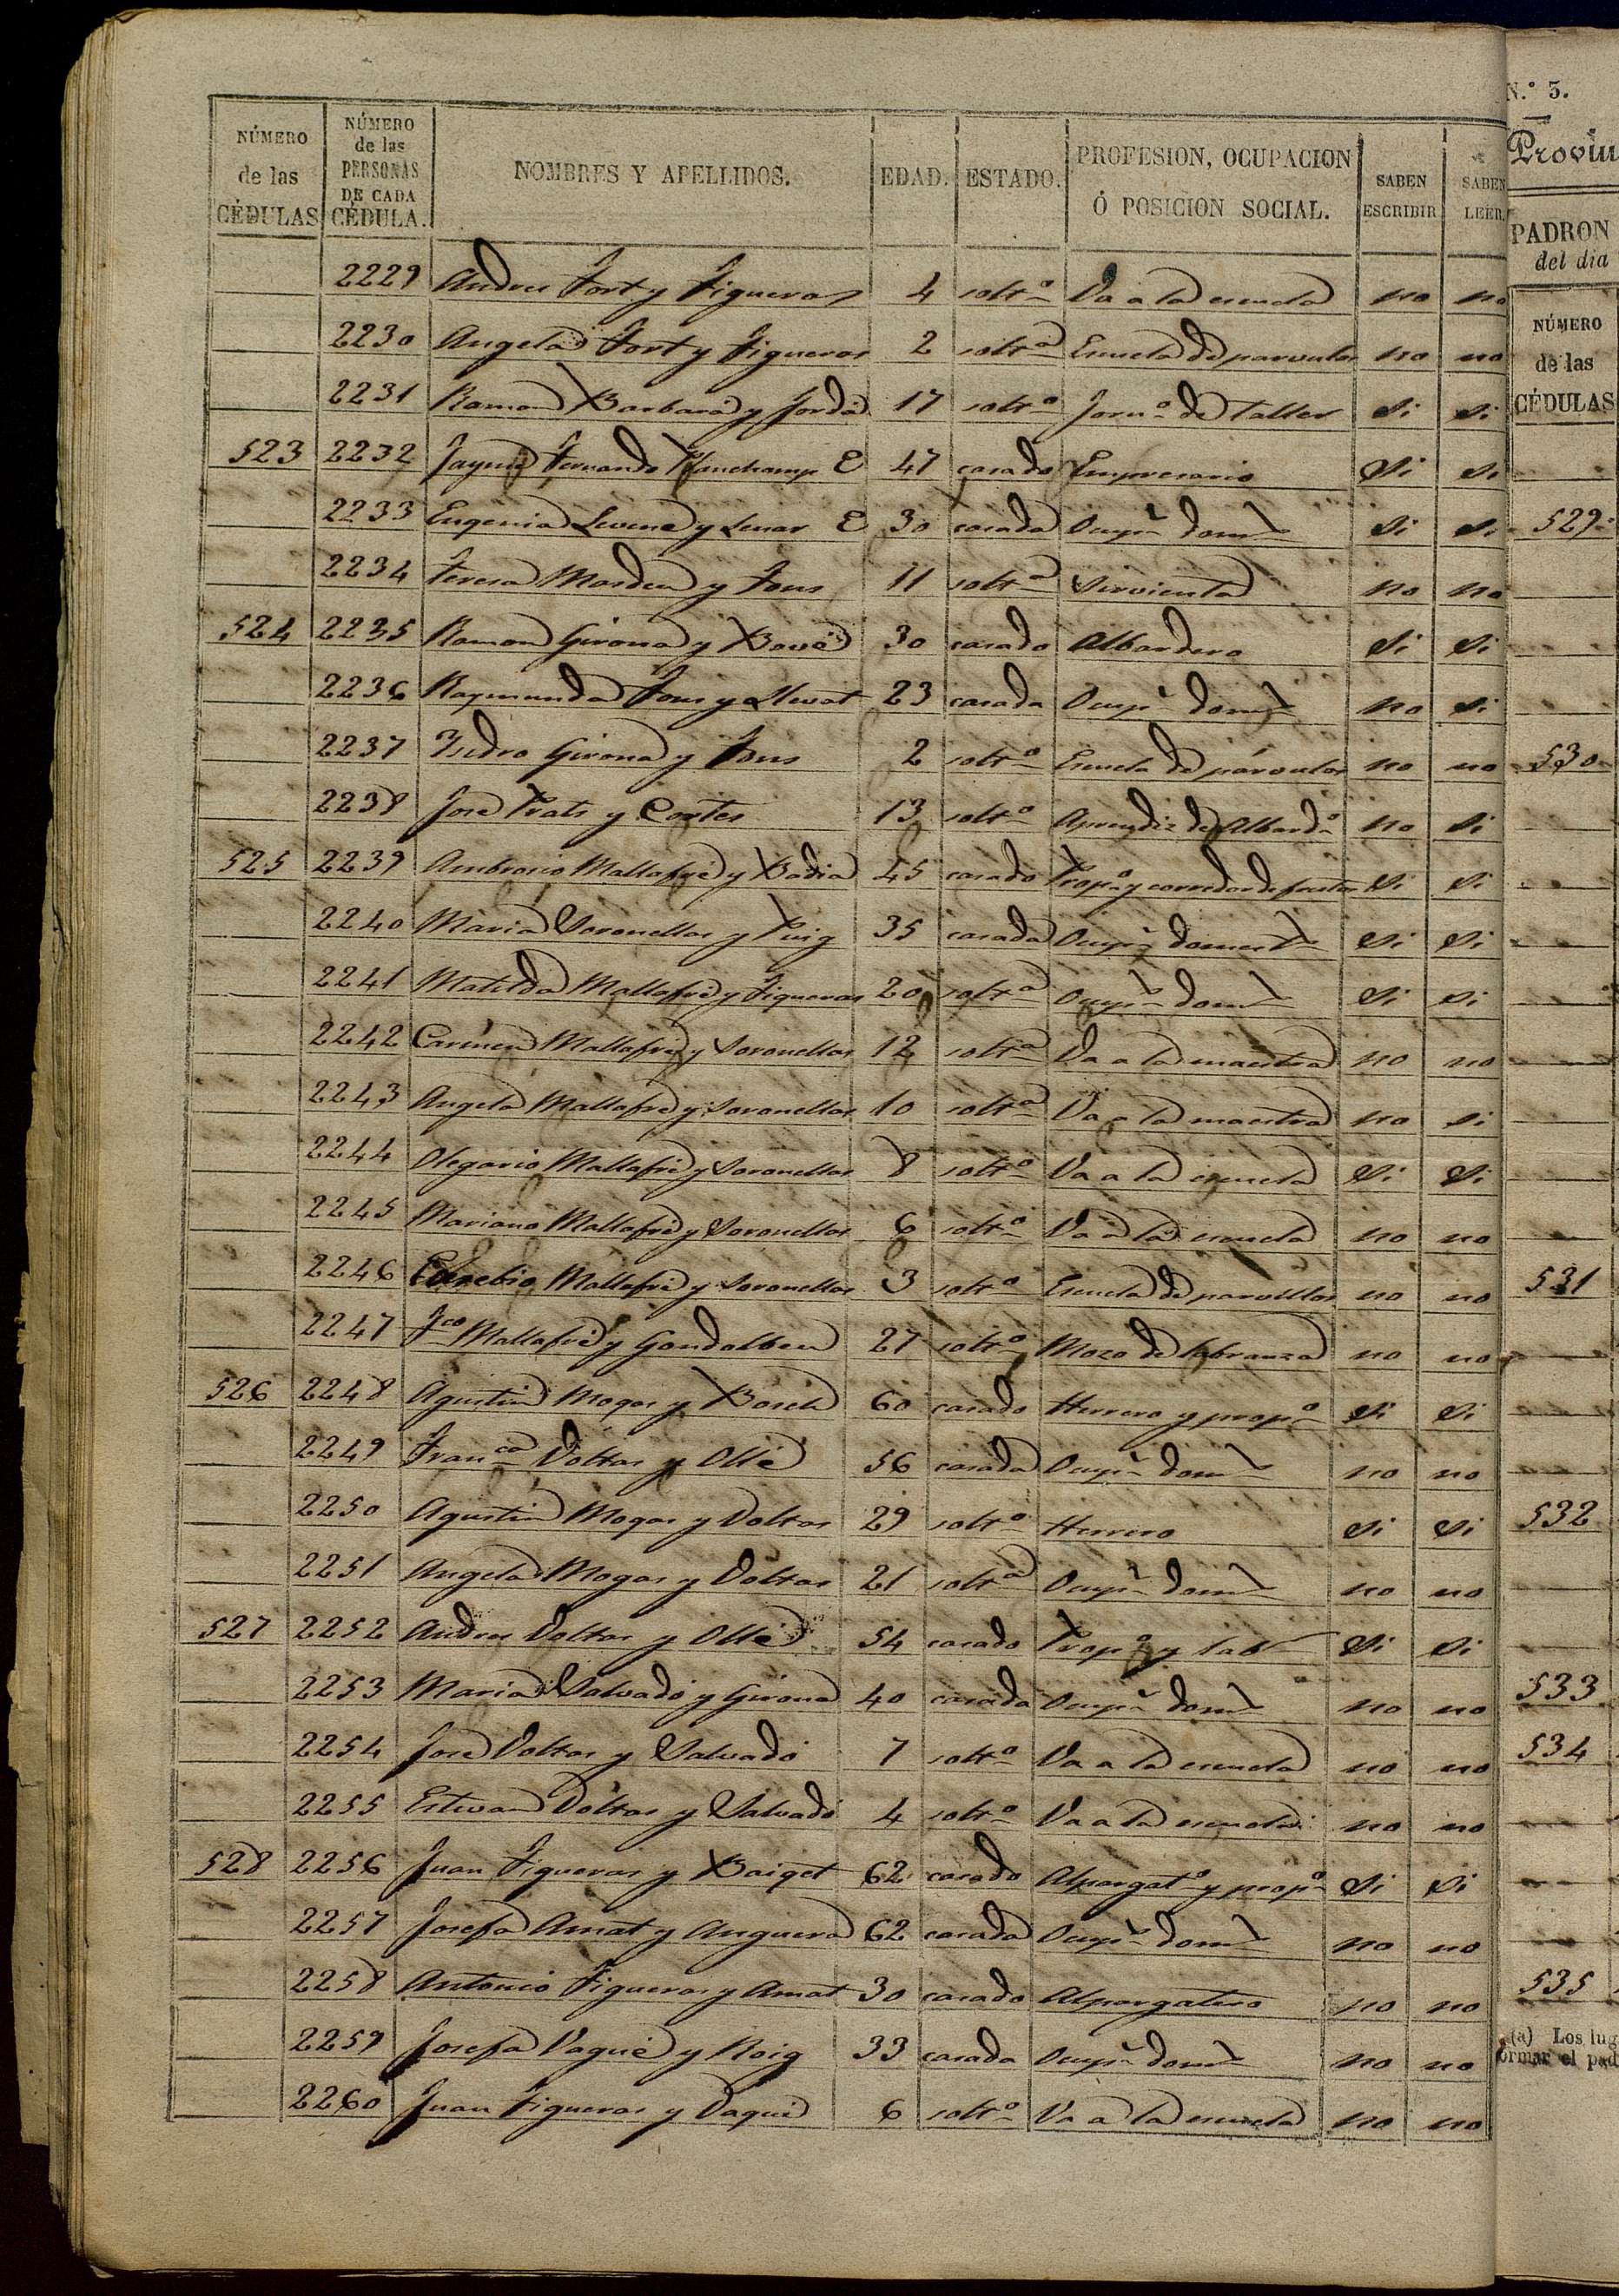 NÚMERO de las CÉDULAS | NÚMERO de las PERSONAS DE CADA CÉDULA. | NOMBRES Y APELLIDOS. | EDAD. | ESTADO. | PROFESION, OCUPACION Ó POSICION SOCIAL. | SABEN ESCRIBIR | SABEN LEER.
2229 Andres Fort y Figueras 4 soltº Va a la escuela no no
2230 Angela Fort y Figueras 2 soltª Escuela de parvulos no no
2231 Ramon Barbará y Jordá 17 soltº Jornº de Taller Si Si
523 2232 Jayme Fernando E 47 casado Empresario Si Si
2233 Eugenia y E 30 casada Ocupn domt Si Si
2234 Teresa Masdeu y Fons 11 soltª Sirvienta no no
524 2235 Ramon Girona y Bové 30 casado Albardero Si Si
2236 Raymunda Fons y Llevat 23 casada Ocupn domt no Si
2237 Isidro Girona y Fons 2 soltº Escuela de párvulos no no
2238 José Prats y Cortes 13 soltº Aprendiz de Albardº no Si
525 2239 Ambrosio Mallafré y Badia 45 casado Propº y corredor de frutos Si Si
2240 Maria Soronellas y Puig 35 casada Ocupn domest Si Si
2241 Matilda Mallafré y Figueras 20 soltª Ocupn domt Si Si
2242 Carmen Mallafré y Soronellas 12 soltª Va a la maestra no no
2243 Angela Mallafré y Soronellas 10 soltª Va a la maestra no si
2244 Olegario Mallafré y Soronellas 8 soltº Va a la escuela Si Si
2245 Mariano Mallafré y Soronellas 6 soltº Va a la escuela no no
2246 Eusebio Mallafré y Soronellas 3 soltº Escuela de parvulos no no
2247 Fco Mallafré y Gondolbeu 27 soltº Mozo de labranza no no
526 2248 Agustin Mogas y Bosch 60 casado Herrero y propº Si Si
2249 Franca Voltas y Ollé 56 casada Ocupn domt no no
2250 Agustin Mogas y Voltas 29 soltº Herrero Si Si
2251 Angela Mogas y Voltas 21 soltª Ocupn domt no no
527 2252 Andres Voltas y Ollé 54 casado Propº y lab Si Si
2253 Maria Salvadó y Girona 40 casada Ocupn domt no no
2254 José Voltas y Salvadó 7 soltº Va a la escuela no no
2255 Estevan Voltas y Salvadó 4 soltº Va a la escuela no no
528 2256 Juan Figueras y Baiget 62 casado Alpargatº y propº Si Si
2257 Josefa Amat y Anguera 62 casada Ocupn domt no no
2258 Antonio Figueras y Amat 30 casado Alpargatero no no
2259 Josefa Vaqué y Roig 33 casada Ocupn domt no no
2260 Juan Figueras y Vaqué 6 soltº Va a la escuela no no
N.º 3.
Provin
PADRON
del dia
NÚMERO
de las
CÉDULAS
529
530
531
532
533
534
535
(a) Los lug
ormar el pad